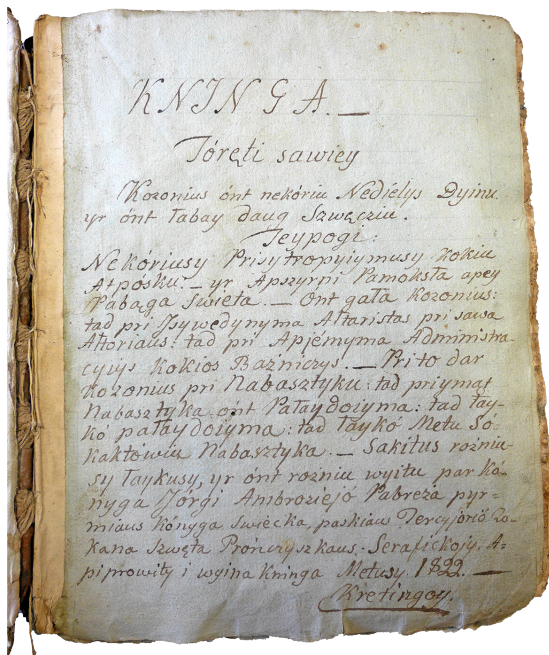 KNINGA. —
Tóręti sawiey
Kozonius ónt nekóriu Nedielys Dyinu
yr ónt łabay daug Szwęcziu.
Teypogi:
Nekóriusy Prisytropyiymusy kokiu
Atposku. — yr Apszyrpi Pamoksła apey
Pabaga Swieta. — Ont gała Kozonius:
tad pri Jsywedynyma Altaristas pri sawa
Ałtoriaus: tad pri Apjemyma Administra-
cyiys kokios Bazniczys. — Prito dar
kozonius pri Nabasztyku: tad priymąt
Nabasztyka ónt Pałaydoiyma: tad łay-
kó pałaydoiyma: tad łaykó Metu Só-
kaktówiu Nabasztyka. — Sakitus rozniu-
sy łaykusy, yr ónt rozniu wyitu par Kó-
nyga Jórgi Ambroziejó Pabreża pyr-
miaus kónyga Swiecka, paskiaus Tercyjorió Zo-
kana Szwęta Prończyszkaus: Serafickojy. A=
piprowity i wyina Kninga Metusy. 1822. —
Kretingoy.